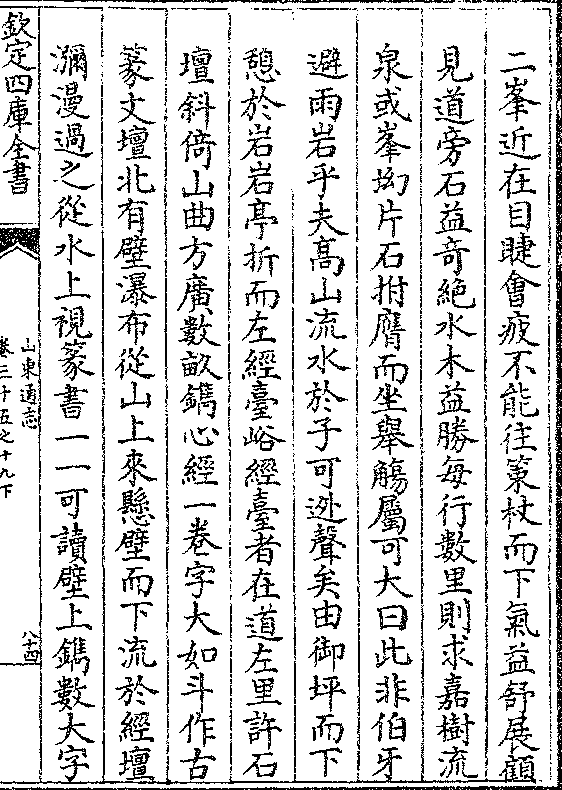 二峯近在目睫會疲不能往策杖而下氣益舒展顧
見道旁石益奇絶水木益勝每行數里則求嘉樹流
泉或峯坳片石拊膺而坐舉觴屬可大曰此非伯牙
避雨岩乎夫髙山流水於子可迯聲矣由御坪而下
憩於岩岩亭折而左經臺峪經臺者在道左里許石
壇斜倚山曲方廣數畝鐫心經一卷字大如斗作古
篆文壇北有壁瀑布從山上來懸壁而下流於經壇
瀰漫過之從水上視篆書一一可讀壁上鐫數大字
欽定四庫全書
山東通志
卷三十五之十九下
八十四